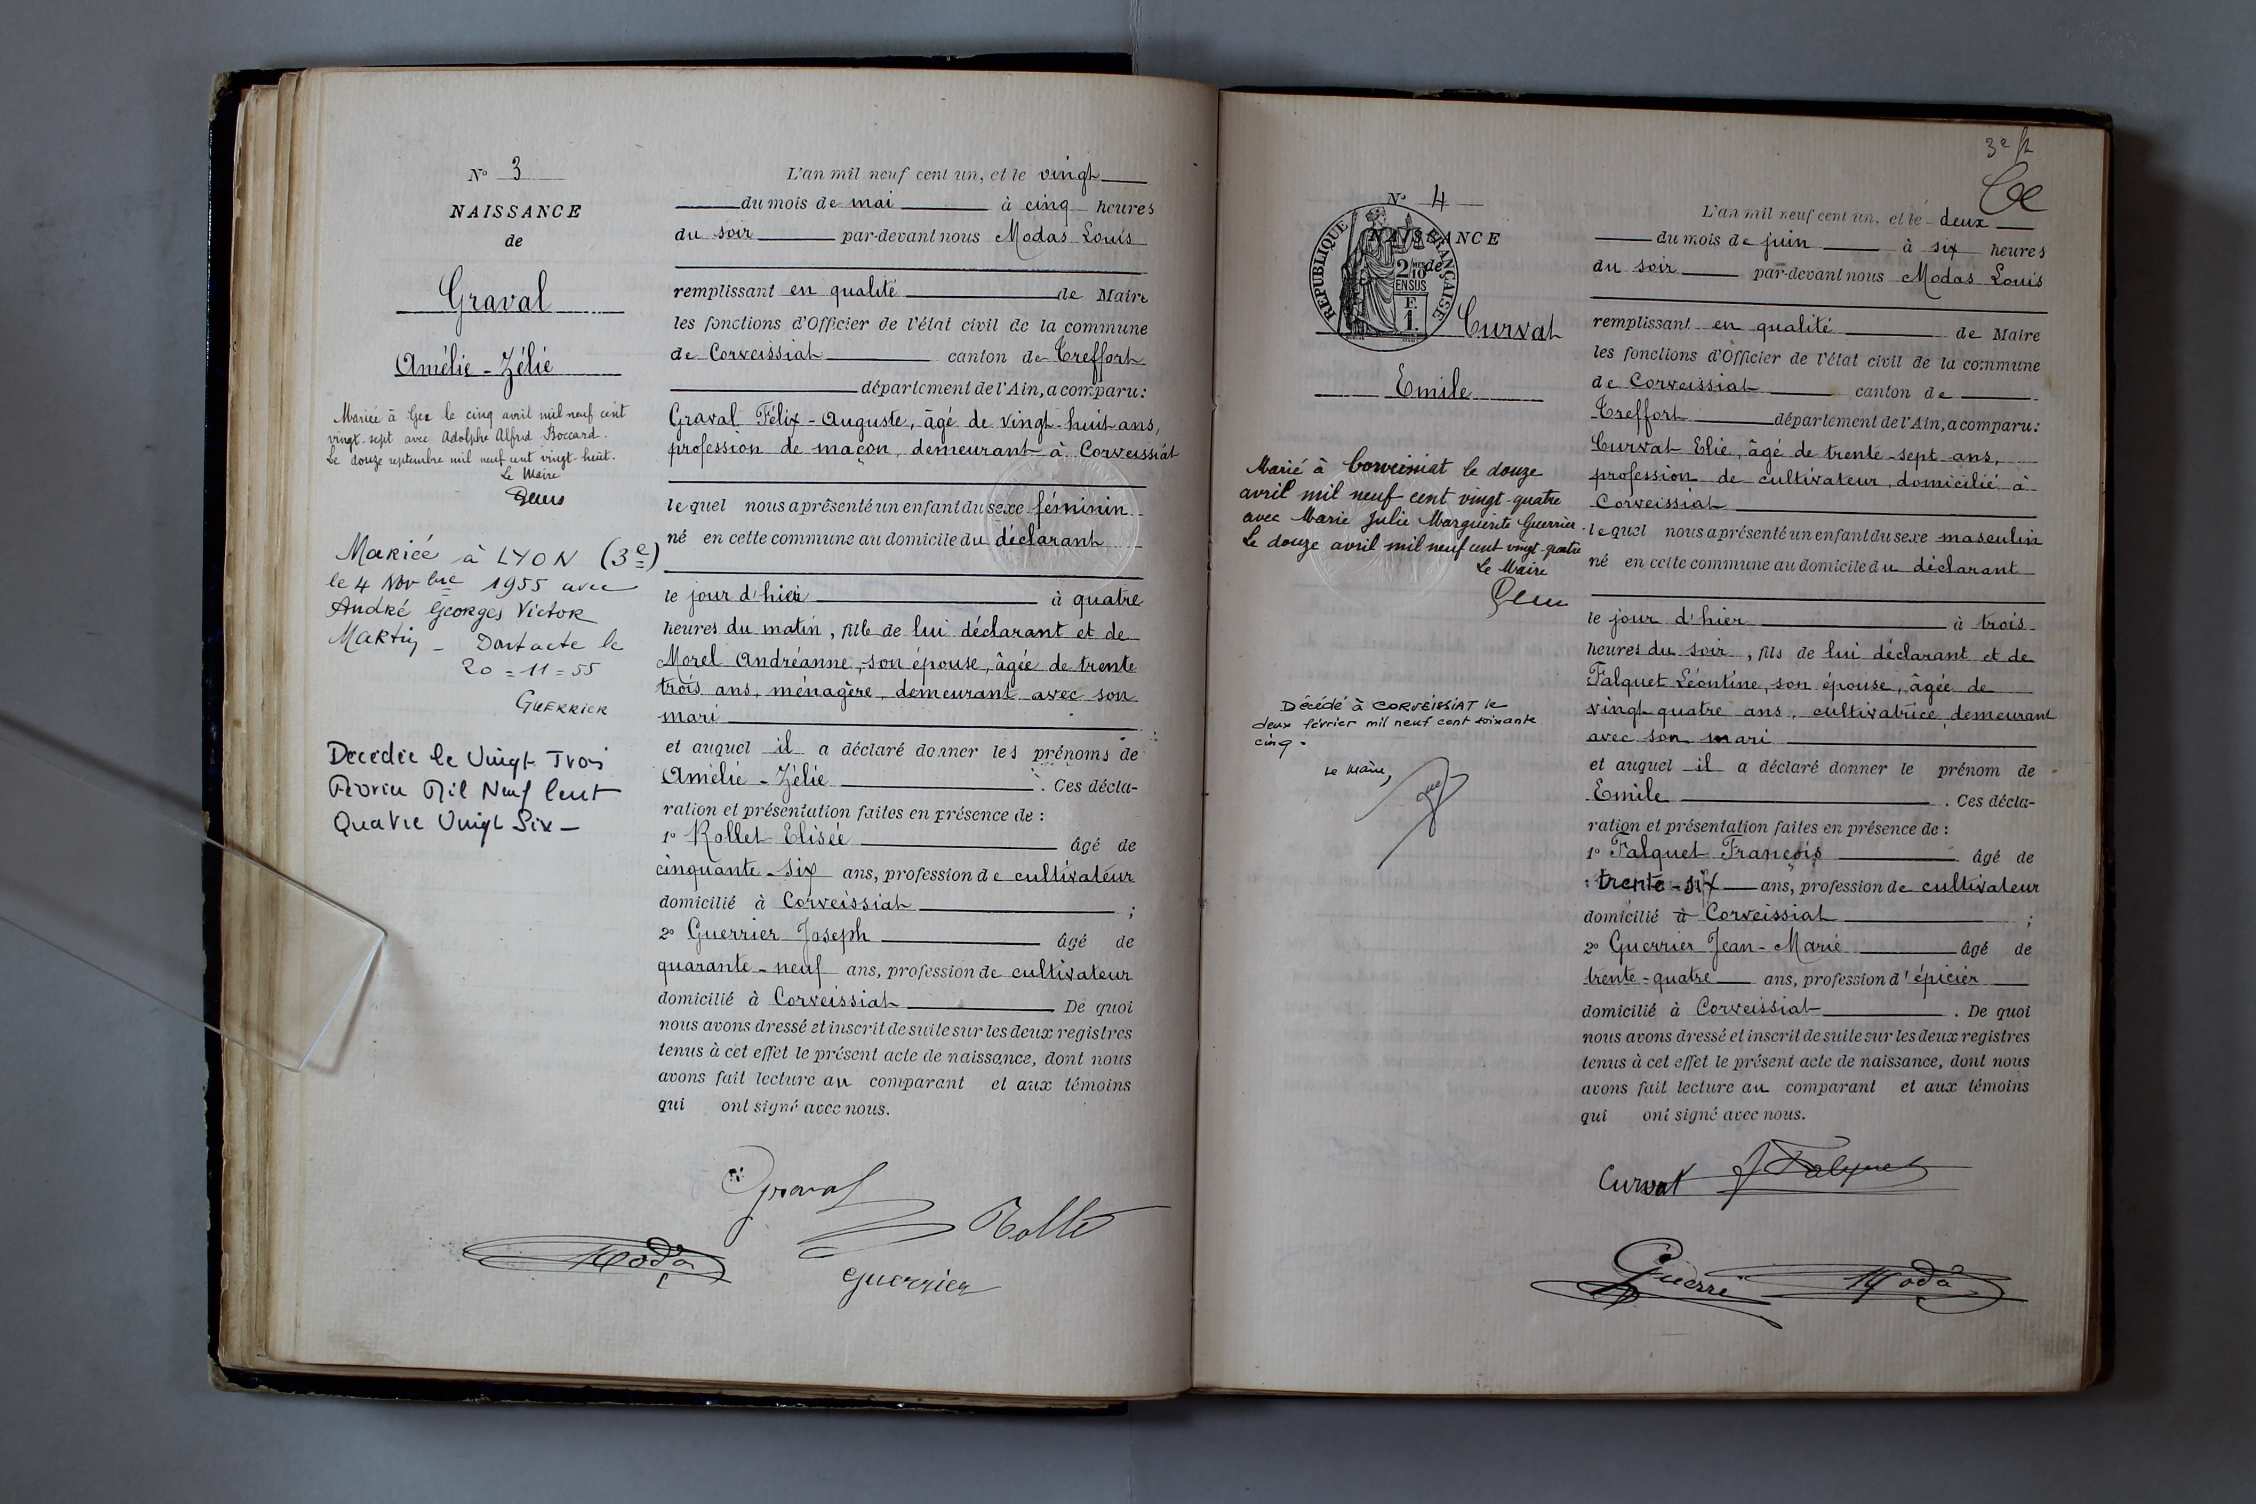 N° 3
NAISSANCE
de
Graval
Amélie - Zélie
Mariée à Gex le cinq avril mil neuf cent
vingt-sept avec Adolphe Alfred Boccard.
Le douze septembre mil neuf cent vingt-huit.
Le Maire
Mariée à LYON (3e)
le 4 Novbre 1955 avec
André Georges Victor
Martin - Dont acte le
20=11=55
GUERRIER
Décédée le Vingt Trois
Février Mil Neuf Cent
Quatre Vingt Six -
L'an mil neuf cent un, et le vingt
du mois de mai à cinq heures
du soir par-devant nous Modas Louis
remplissant en qualité de Maire
les fonctions d'Officier de l'état civil de la commune
de Corveissiat canton de Treffort
département de l'Ain, a comparu:
Graval Félix-Auguste, âgé de vingt-huit ans,
profession de maçon, demeurant à Corveissiat
lequel nous a présenté un enfant du sexe féminin
né en cette commune au domicile du déclarant
le jour d'hier à quatre
heures du matin, fille de lui déclarant et de
Morel Andréanne, son épouse, âgée de trente
trois ans, ménagère, demeurant avec son
mari
et auquel il a déclaré donner les prénoms de
Amélie - Zélie . Ces décla-
ration et présentation faites en présence de :
1° Rollet Elisée âgé de
cinquante-six ans, profession de cultivateur
domicilié à Corveissiat ;
2° Guerrier Joseph âgé de
quarante-neuf ans, profession de cultivateur
domicilié à Corveissiat De quoi
nous avons dressé et inscrit de suite sur les deux registres
tenus à cet effet le présent acte de naissance, dont nous
avons fait lecture au comparant et aux témoins
qui ont signé avec nous.
Graval
Rollet
Modas
Guerrier
3e
N° 4
NAISSANCE
de
RÉPUBLIQUE FRANÇAISE
2/10
EN SUS
F.
1.
Curvat
Emile
Marié à Corveissiat le douze
avril mil neuf cent vingt-quatre
avec Marie Julie Marguerite Guerrier.
Le douze avril mil neuf cent vingt-quatre
Le Maire
Décédé à CORVEISSIAT le
deux février mil neuf cent soixante
cinq.
Le Maire,
L'an mil neuf cent un, et le deux
du mois de juin à six heures
du soir par-devant nous Modas Louis
remplissant en qualité de Maire
les fonctions d'Officier de l'état civil de la commune
de Corveissiat canton de
Treffort département de l'Ain, a comparu:
Curvat Elie, âgé de trente-sept ans,
profession de cultivateur, domicilié à
Corveissiat
lequel nous a présenté un enfant du sexe masculin
né en cette commune au domicile du déclarant
le jour d'hier à trois
heures du soir, fils de lui déclarant et de
Falquet Léontine, son épouse, âgée de
vingt quatre ans, cultivatrice, demeurant
avec son mari
et auquel il a déclaré donner le prénom de
Emile . Ces décla-
ration et présentation faites en présence de :
1° Falquet François âgé de
trente-six ans, profession de cultivateur
domicilié à Corveissiat ;
2° Guerrier Jean-Marie âgé de
trente-quatre ans, profession d'épicier
domicilié à Corveissiat . De quoi
nous avons dressé et inscrit de suite sur les deux registres
tenus à cet effet le présent acte de naissance, dont nous
avons fait lecture au comparant et aux témoins
qui ont signé avec nous.
Curvat F Falquet
Guerrier Modas